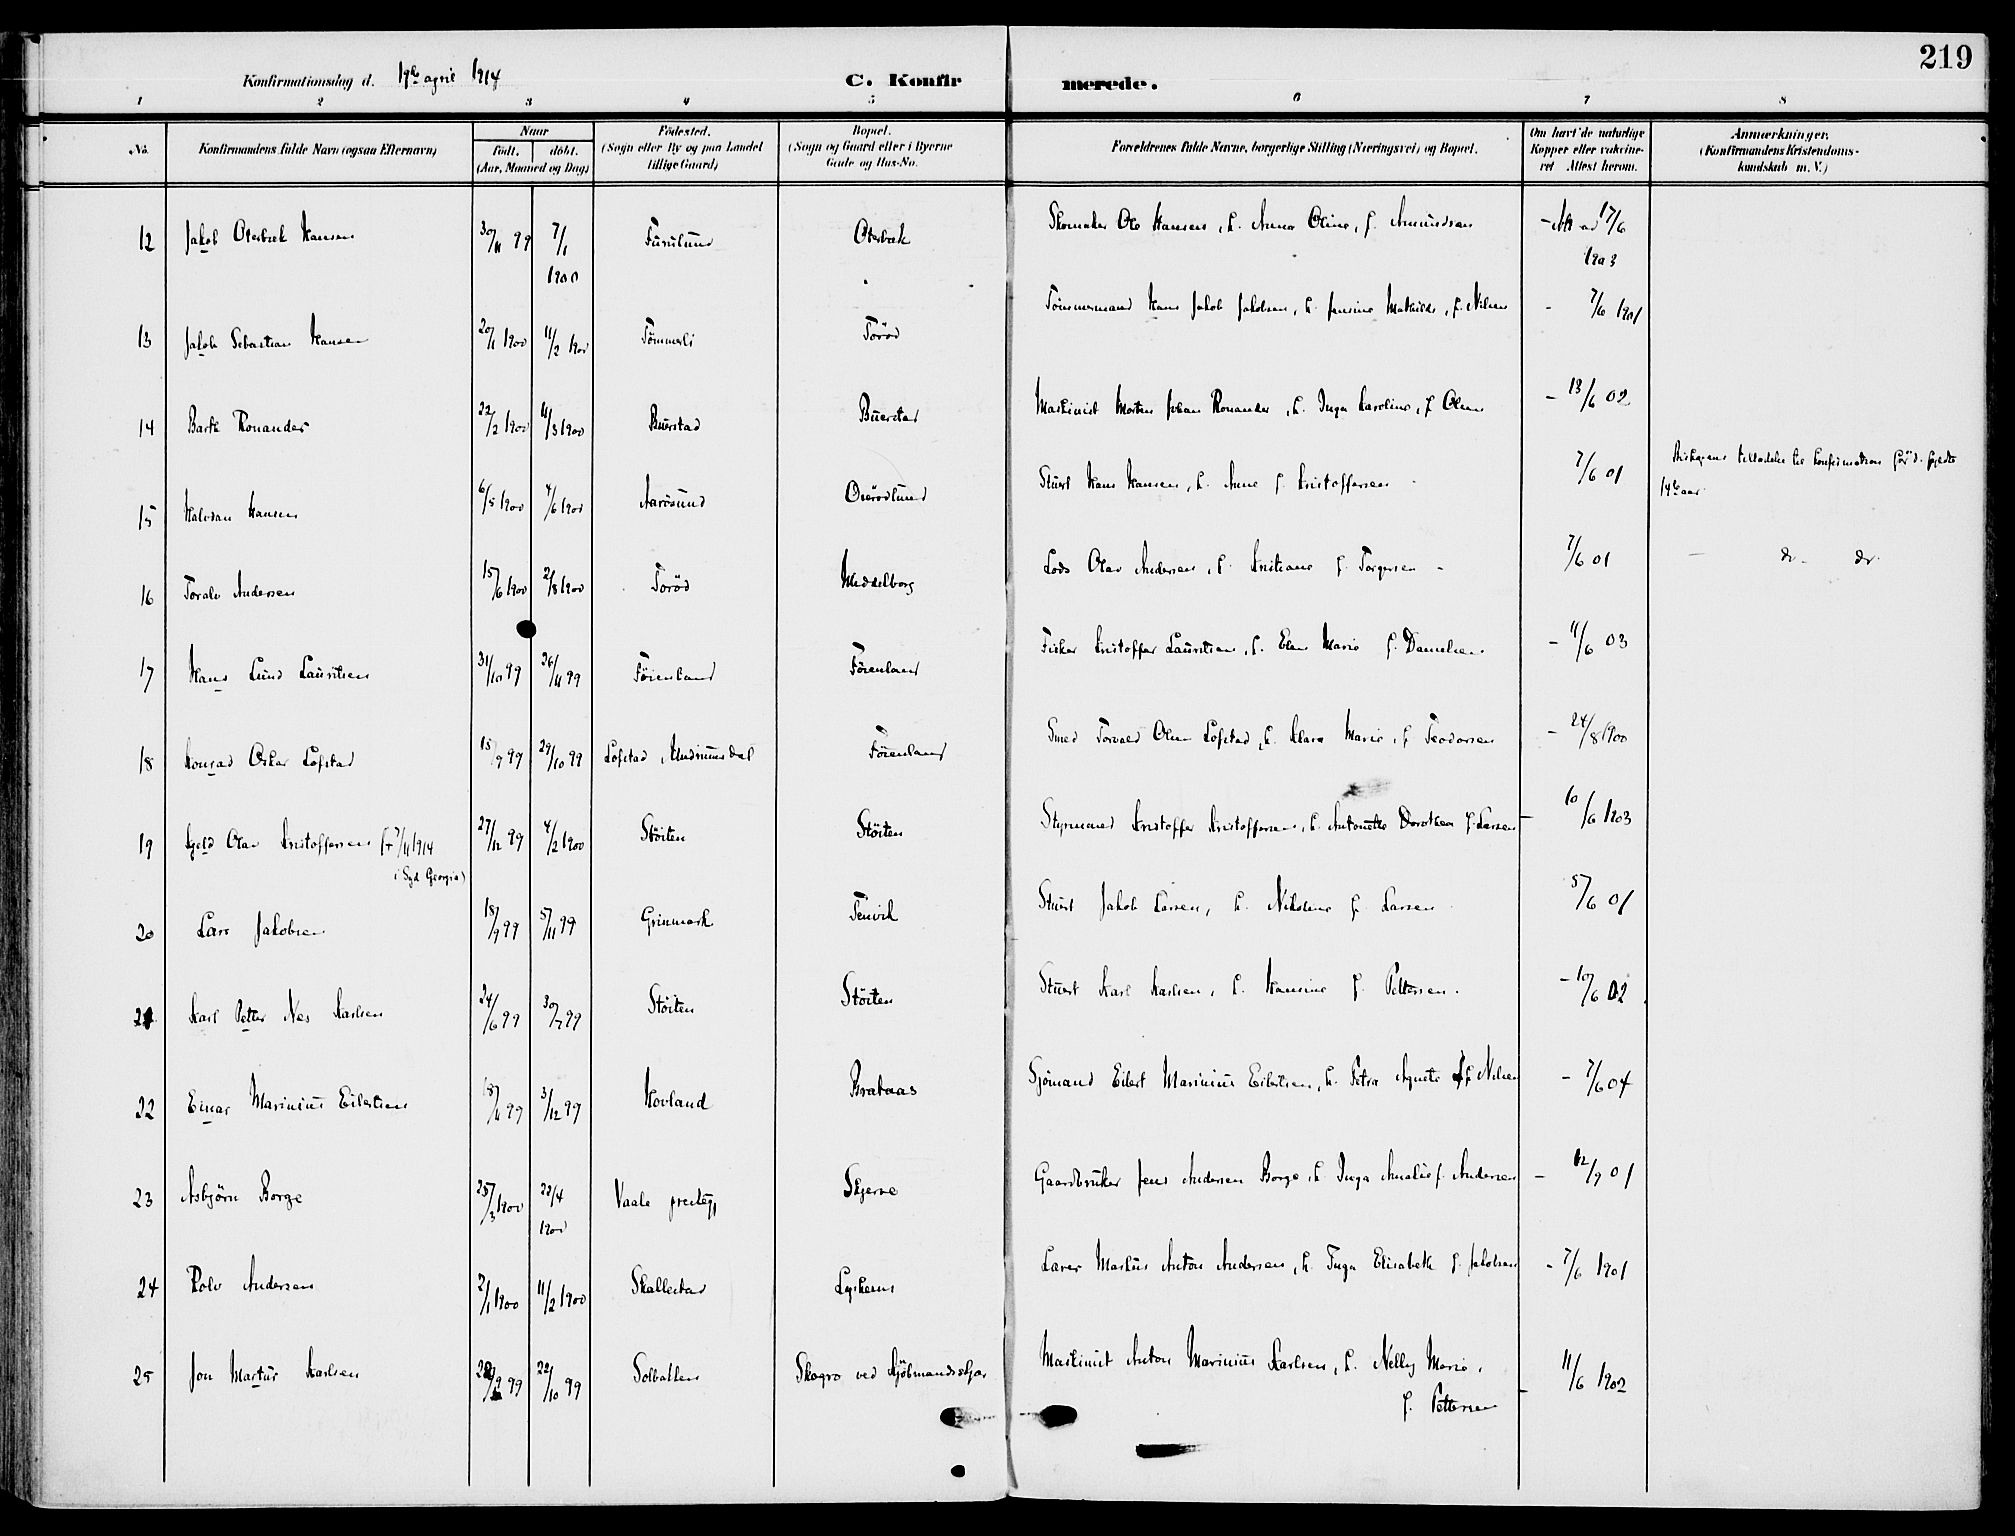 219
Konfirmationsdag d. 19de april 1914
C. Konfirmerede.
1 2 3 4 5 6 7 8
No.
Konfirmandens fulde Navn (ogsaa Efternavn)
Naar
født. døbt.
(Aar, Maaned og Dag)
Fødested.
(Sogn eller By og paa Landet
tillige Gaard)
Bopæl.
(Sogn og Gaard eller i Byerne
Gade og Hus-No.
Forældrenes fulde Navne, borgerlige Stilling (Næringsvei) og Bopæl.
Om havt de naturlige
Kopper eller vaksine-
ret Attest herom.
Anmærkninger.
(Konfirmandens Kristendoms-
kundskab m. V.)
12 Jakob Oterbæk Hansen 30/11 99 7/1 1900 Furulund Oterbæk Skomaker Ole Hansen, h. Anna Oline, f. Amundsen - 17/6 1903
13 Jakob Sebastian Hansen 20/1 1900 11/2 1900 Tømmerli Torød Tømmermand Hans Jakob Jakobsen, h. Jensine Mathilde, f. Nilsen - 7/6 1901
14 Barth Ronander 22/2 1900 11/3 1900 Buerstad Buerstad Maskinist Morten Johan Ronander, h. Inga Karoline, f. Olsen - 13/6 02
15 Halvdan Hansen 6/5 1900 4/6 1900 Aarøsund Oterødlund Stuert Hans Hansen, h. Anne f. Kristoffersen 7/6 01 Biskopens tilladelse til konfirmation før d. fyldte
14de aar
16 Toralv Andersen 15/6 1900 2/8 1900 Torød Middelborg Lods Olav Andersen, h. Kristiane f. Torgersen - 7/6 01 - do - do.
17 Hans Lund Lauritsen 31/10 99 26/11 99 Føienland Føienland Fisker Kristoffer Lauritsen, h. Elen Marie f. Danielsen - 11/6 03
18 Konrad Oskar Lofstad 15/9 99 29/10 99 Lofstad, Undrumsdal Føienland Smed Torvald Olsen Lofstad, h. Klara Marie, f. Teodorsen - 24/8 1900
19 Kjeld Olav Kristoffersen (+ 7/11 1914
i Syd Georgia) 27/12 99 4/2 1900 Støiten Støiten Styrmand Kristoffer Kristoffersen, h. Antonette Dorothea f. Larsen - 10/6 1903
20 Lars Jakobsen 18/9 99 5/11 99 Grinmark Tenvik Stuert Jakob Larsen, h. Nikoline f. Larsen 5/6 01
21 Karl Petter Nes Karlsen 24/6 99 30/7 99 Støiten Støiten Stuert Karl Karlsen, h. Hansine f. Pettersen. - 10/6 02
22 Einar Marinius Eilertsen 18/11 99 3/12 99 Hovland Brataas Sjømand Eilert Marinius Eilertsen, h. Petra Agnete f. Nilsen - 7/6 04
23 Asbjørn Borge 25/3 1900 22/4 1900 Vaale prestegj Skjerve Gaardbruker Jens Andersen Borge, h. Inga Amalie f. Andersen - 12/9 01
24 Rolv Andersen 2/1 1900 11/2 1900 Skallestad Lysheim Larer Markus Anton Andersen, h. Inga Elisabeth f. Jakobsen - 7/6 1901
25 Jon Martur Karlsen 99 22/10 99 Solbakken Skogro ved Kjøbmandsskjær Maskinist Anton Marinius Karlsen, h. Nelly Marie,
f. Pettersen - 11/6 1902